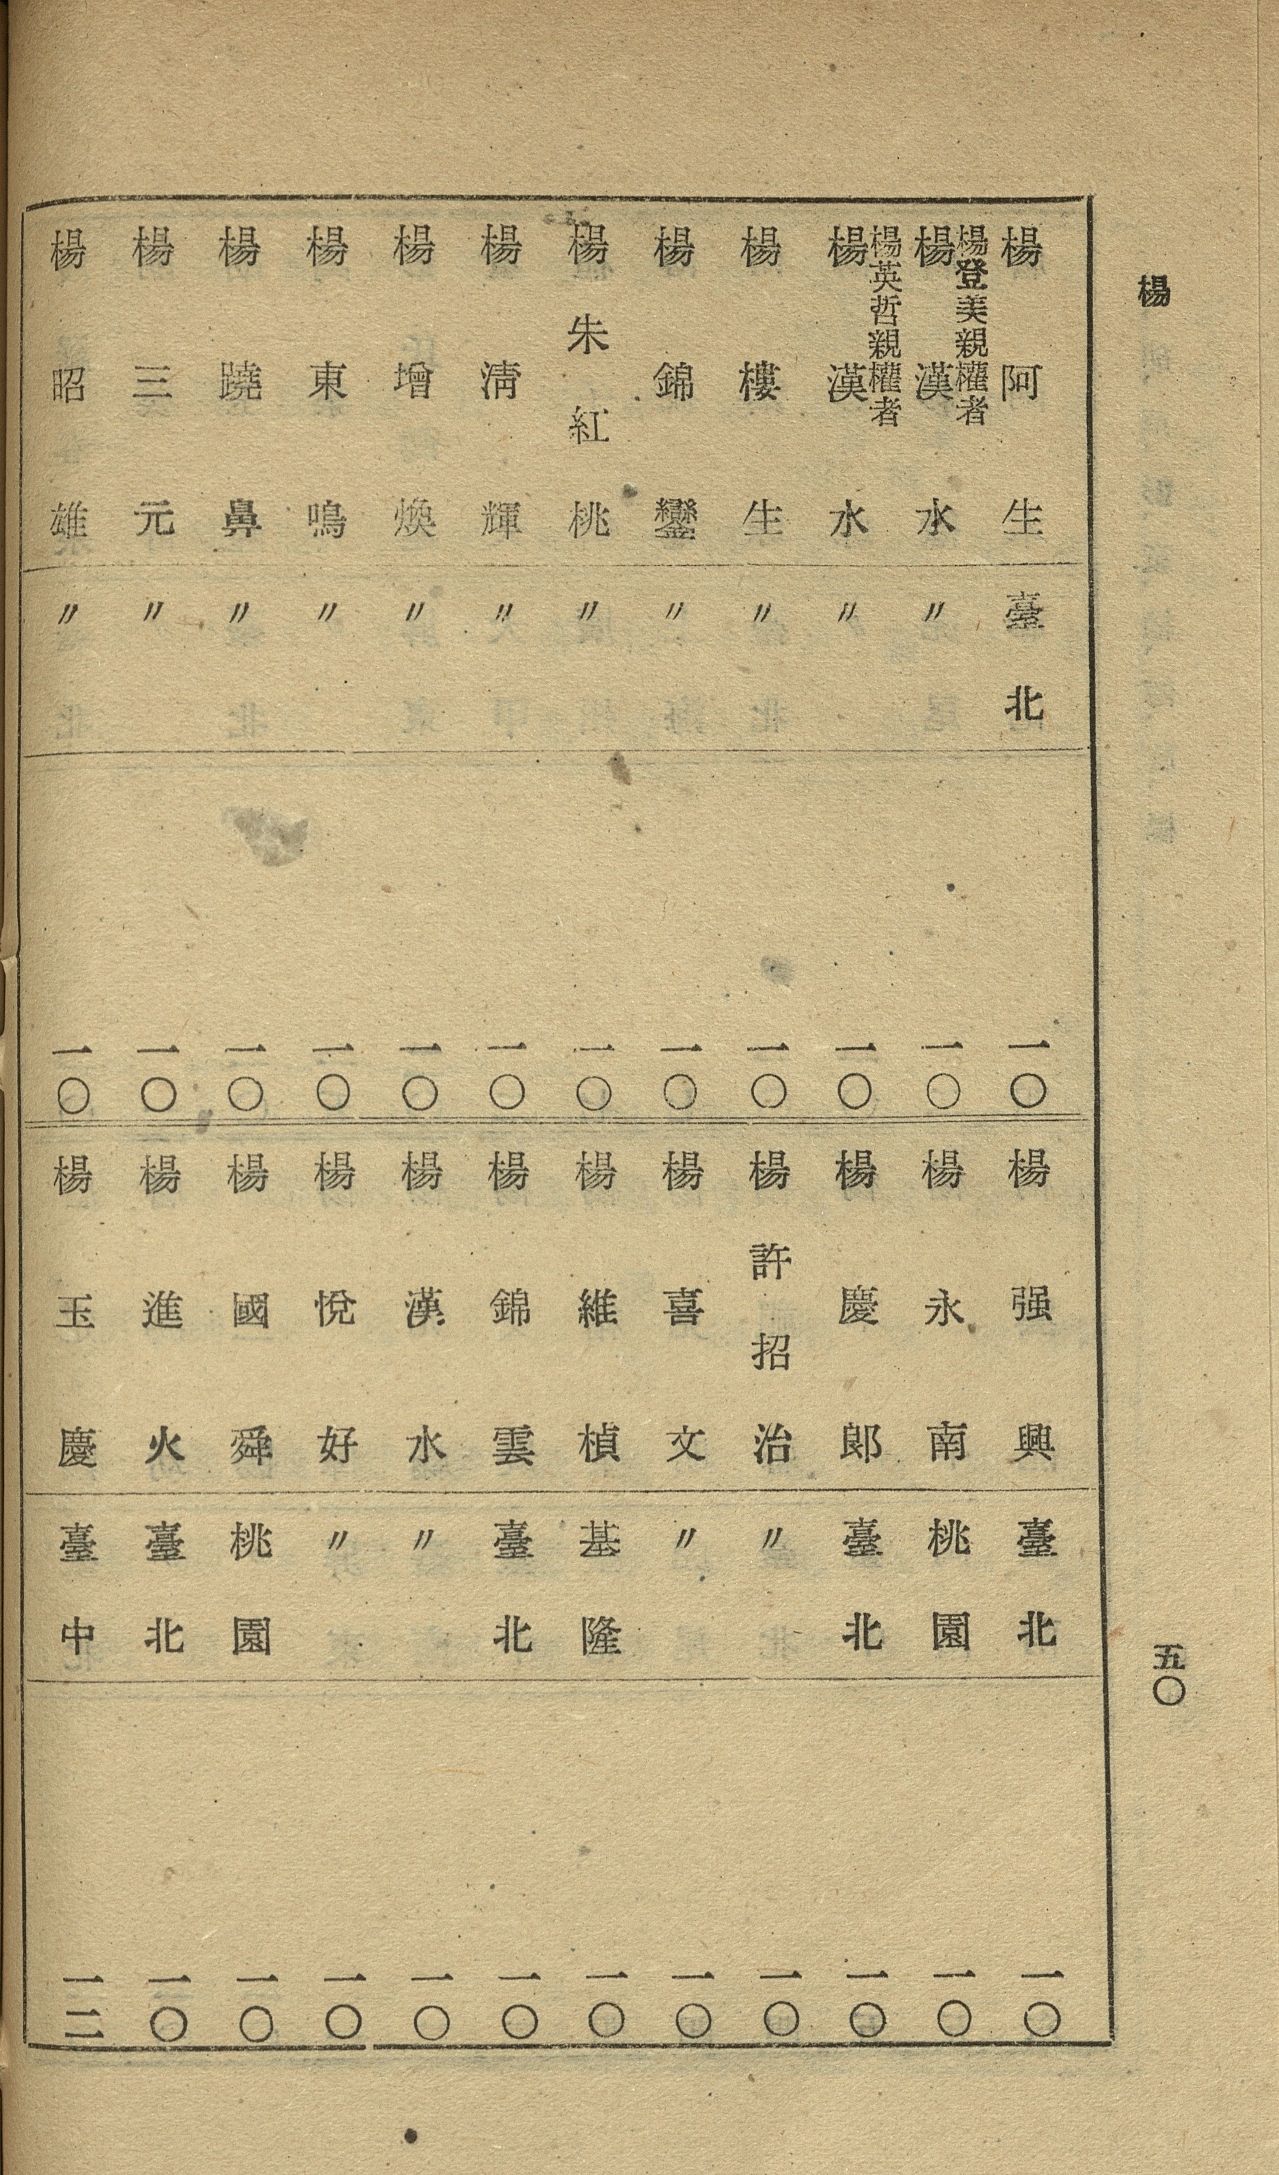 楊
五〇
楊阿生 臺北 一〇
楊登美親權者
楊漢水 〃 一〇
楊英哲親權者
楊漢水 〃 一〇
楊樓生 〃 一〇
楊錦鑾 〃 一〇
楊朱紅桃 〃 一〇
楊清輝 〃 一〇
楊增煥 〃 一〇
楊東鳴 〃 一〇
楊蹺鼻 〃 一〇
楊三元 〃 一〇
楊昭雄 〃 一〇
楊强興 臺北 一〇
楊永南 桃園 一〇
楊慶郎 臺北 一〇
楊許招治 〃 一〇
楊喜文 〃 一〇
楊維楨 基隆 一〇
楊錦雲 臺北 一〇
楊漢水 〃 一〇
楊悅好 〃 一〇
楊國舜 桃園 一〇
楊進火 臺北 一〇
楊玉慶 臺中 一二